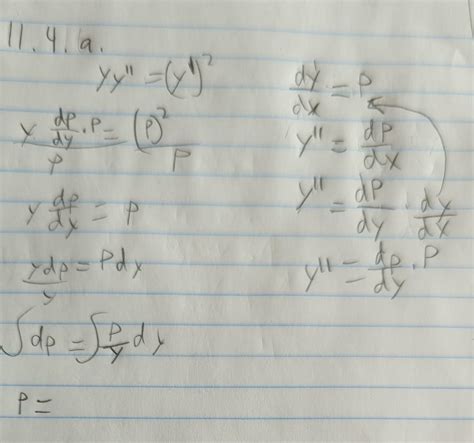 11.4.a.
yy'' = (y')²
y dp/dy · p / p = (p)² / p
y dp/dy = p
y dp / y = p dy
∫dp = ∫p/y dy
p =
dy/dx = p
y'' = dp/dx
y'' = dp/dy · dy/dx
y'' = dp/dy · p